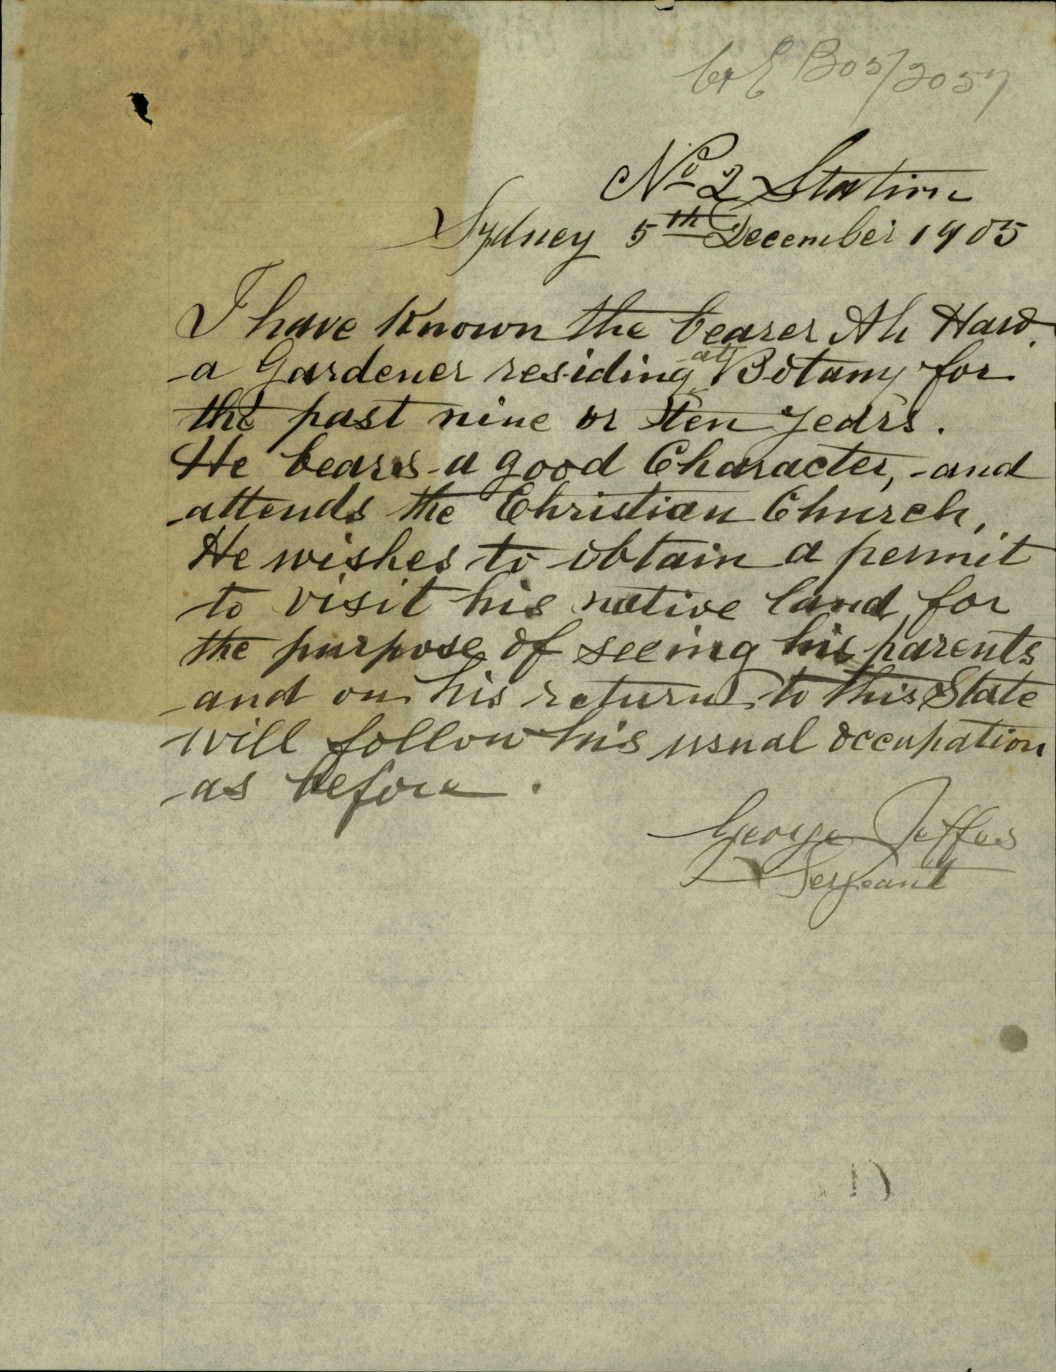 C & E B05/2057
No 2 Station
Sydney 5th December 1905
I have known the bearer Ah Haw.
a Gardener residing at Botany for
the past nine or ten years.
He bears a good Character, and
attends the Christian Church,
He wishes to obtain a permit
to visit his native land for
the purpose of seeing his parents
and on his return to this State
will follow his usual occupation
as before.
George Jeffes
Sergeant